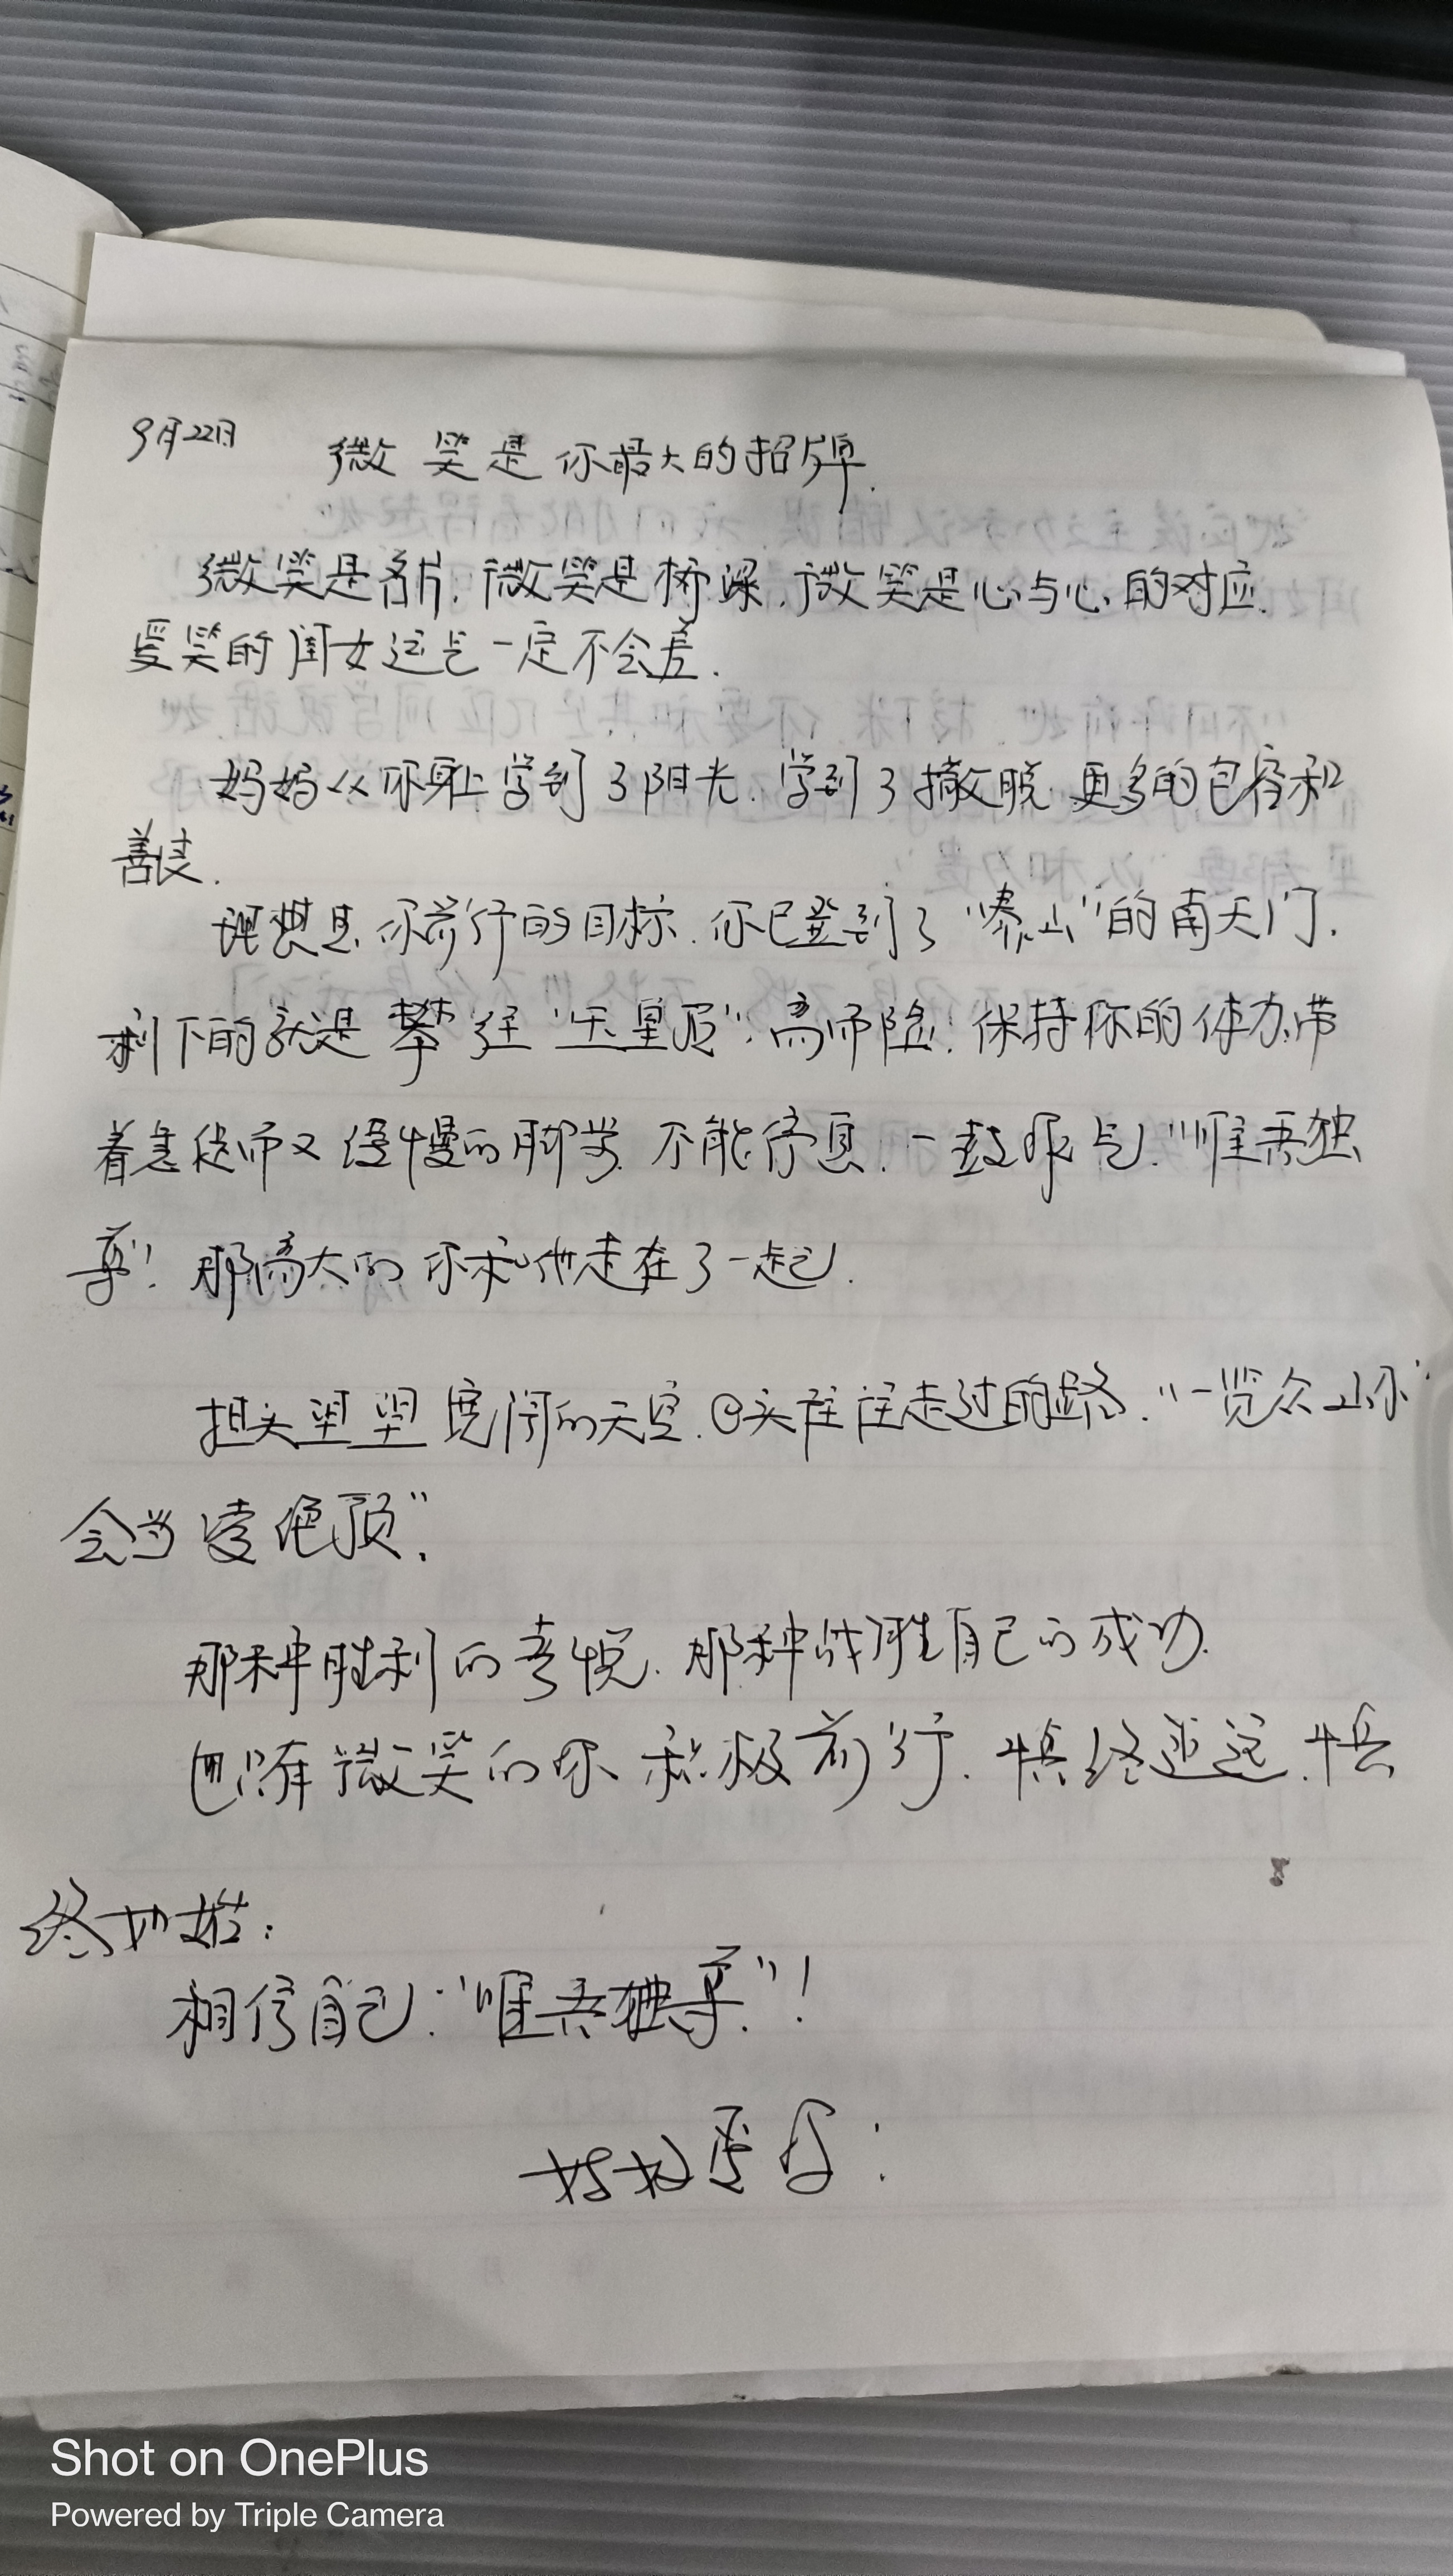 9月22日 微笑是你最大的招牌.
微笑是名片.微笑是桥梁.微笑是心与心的对应.
爱笑的闺女运气一定不会差.
妈妈从你身上学到了阳光.学到了撒脱 更多的包容和
善良.
理想是你前行的目标.你已登到了“泰山”的南天门.
剩下的就是攀登“玉皇顶”.高而险.保持你的体力.带
着急促而又缓慢的脚步 不能停息.一鼓作气.“唯吾独
尊”!那高大的你和他走在了一起.
抬头望望宽阔的天空.回头往往走过的路.“一览众山小
会当凌绝顶”.
那种胜利的喜悦.那种战胜自己的成功.
也只有微笑的你积极前行.慎终追远.慎
终如始:
相信自己:“唯吾独尊”!
妈妈
Shot on OnePlus
Powered by Triple Camera